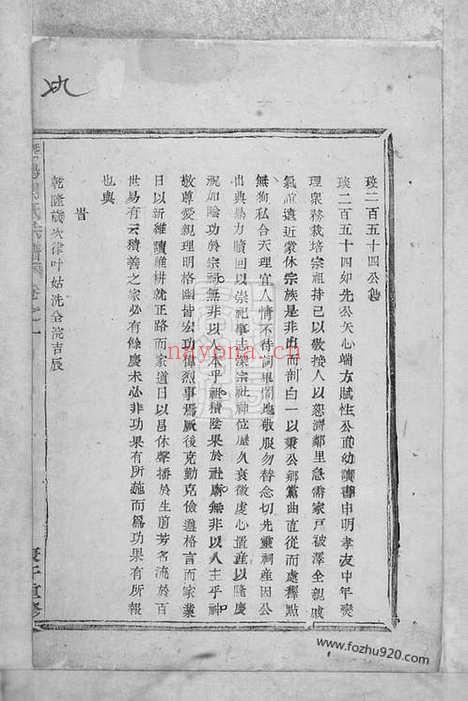 琰二百五十四公傳
琰二百五十四如先公矢心端方賦性公直幼讀書申明孝友中年襄
理衆務栽培宗祖持己以敬接人以恕濟鄰里急需家戸被澤全親戚
氣誼遠近棠休宗族是非出而剖白一以秉公鄉黨曲直從而處釋點
無狥私合天理宜人情不待詞畢閭地敬服勿替念切先靈祠産因公
出典鼎力贖回以崇祀事志深宗社神位歷久衰微虔心置産以隆慶
祝如陰功於宗無非以人本乎祖積陰果於社廟無非以人主乎神
敬尊愛親理明格幽皆宏功偉烈事焉厥後克勤克儉遵格言而家業
日以新雍讀雍耕就正路而家道日以昌休聲播於生前芳名流於百
世易有云積善之家必有餘慶未必非功果有所施而爲功果有所報
也與
旹
乾隆歲次律叶姑洗金浣吉辰
nayona.cn
www.fozhu920.com